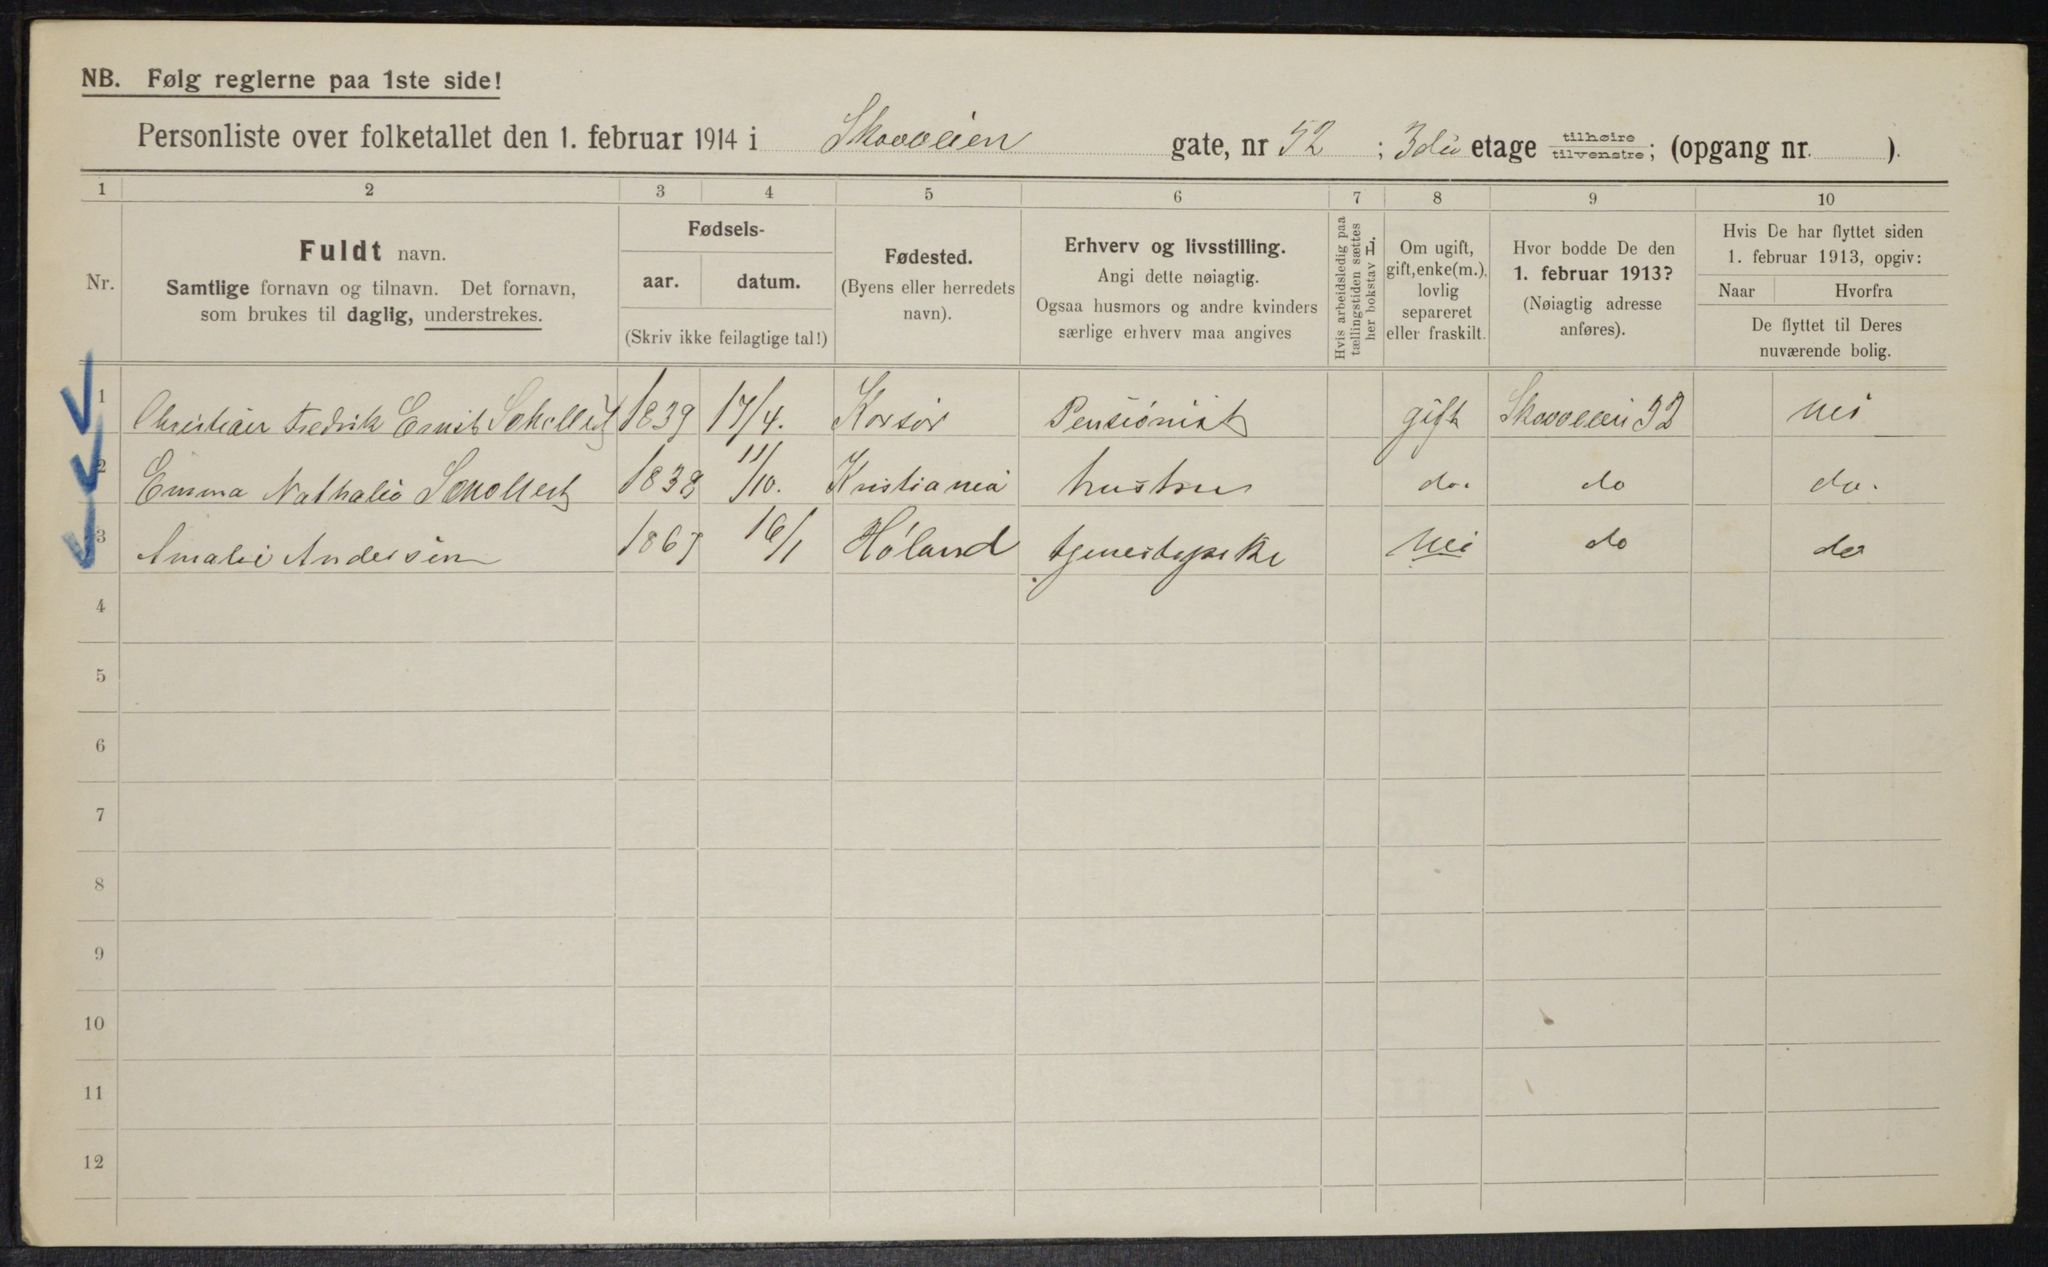 NB. Følg reglerne paa 1ste side!
Personliste over folketallet den 1. februar 1914 i Skovveien gate, nr 52 ; 3die etage tilhøire tilvenstre; (opgang nr. ).
1 2 3 4 5 6 7 8 9 10
Nr.
Fuldt navn.
Samtlige fornavn og tilnavn. Det fornavn,
som brukes til daglig, understrekes.
Fødsels-
aar. datum.
(Skriv ikke feilagtige tal!)
Fødested.
(Byens eller herredets
navn).
Erhverv og livsstilling.
Angi dette nøiagtig.
Ogsaa husmors og andre kvinders
særlige erhverv maa angives
Hvis arbeidsledig paa
tællingstiden sættes
her bokstav L.
Om ugift,
gift, enke(m.),
lovlig
separeret
eller fraskilt.
Hvor bodde De den
1. februar 1913?
(Nøiagtig adresse
anføres).
Hvis De har flyttet siden
1. februar 1913, opgiv:
Naar Hvorfra
De flyttet til Deres
nuværende bolig.
1 Christian Fredrik Ernst Schollert 1839 17/4. Korsør Pensionist gift Skovveien 32 nei
2 Emma Nathalia Schollert 1838 11/10. Kristiania hustru do. do do.
3 Amalie Andersen 1867 16/1 Høland tjenestepike nei do do
4
5
6
7
8
9
10
11
12